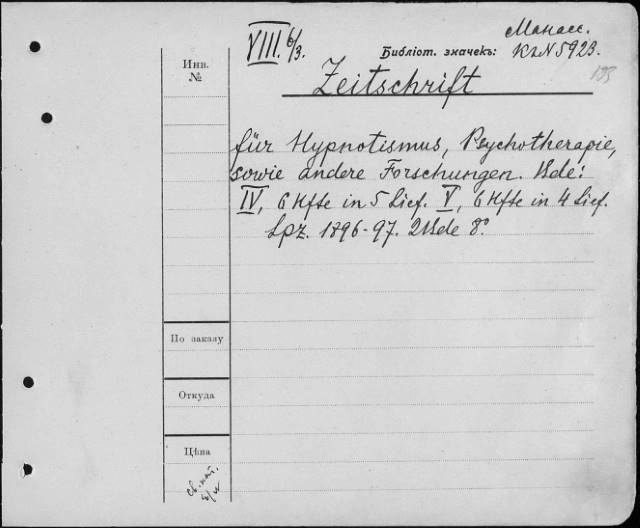 VIII. 6/3.
Манасс.
Библіот. значекъ: К2N5923.
195
Инв.
№
Zeitschrift
für Hypnotismus, Psychotherapie,
sowie andere Forschungen. Bde:
IV, 6 Hfte in 5 Lief. V, 6 Hfte in 4 Lief.
Lpz. 1896-97. 2Bde 8°
По заказу
Откуда
Цѣна